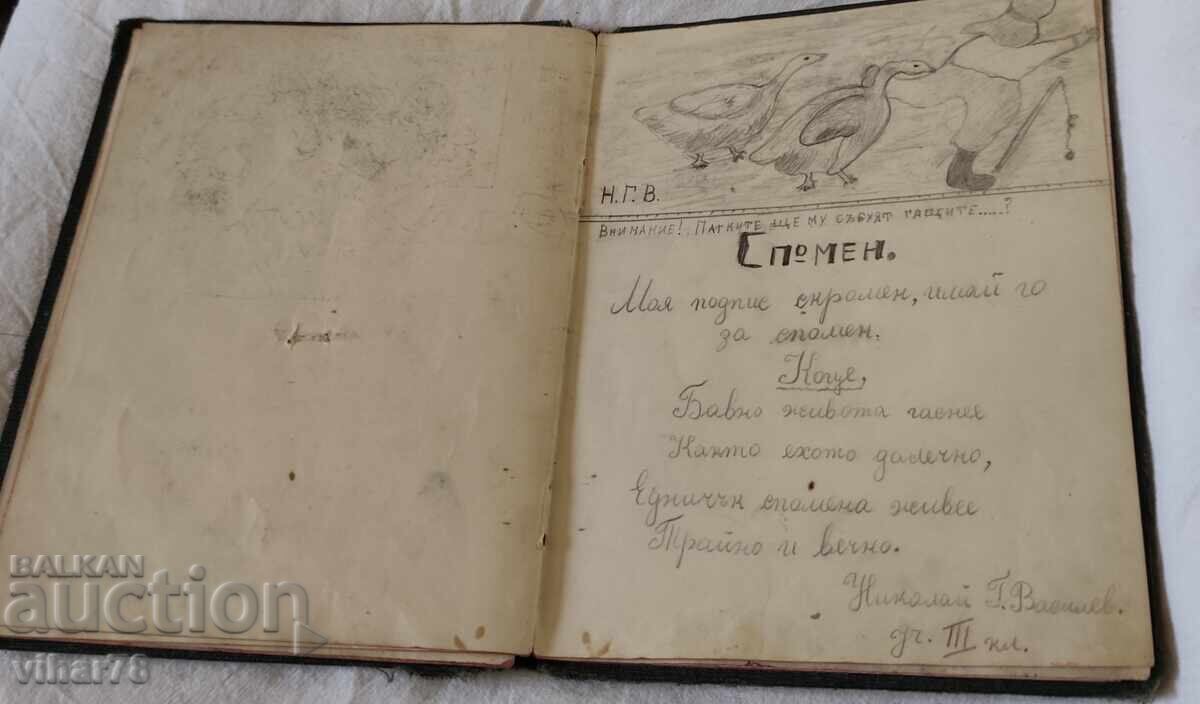 Н.Г.В.
Внимание! Патките ще му събуят гащите.....?
Спомен.
Моя подпис скромен, имай го
за спомен.
Коце,
Бавно живота гаснея
Канто ехото далечно,
Едничък спомена живее
Трайно и вечно.
Николай Г. Василев.
уч. III кл.
BALKAN
auction
vihar78